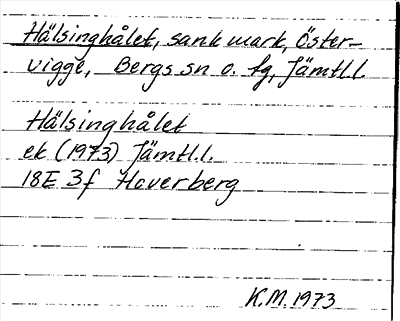 Hälsinghålet, sank mark, Öster-
vigge, Bergs sn o. tg, Jämtl.l.
Hälsinghålet
ek (1973) Jämtl.l.
18E 3f Hoverberg
K.M. 1973